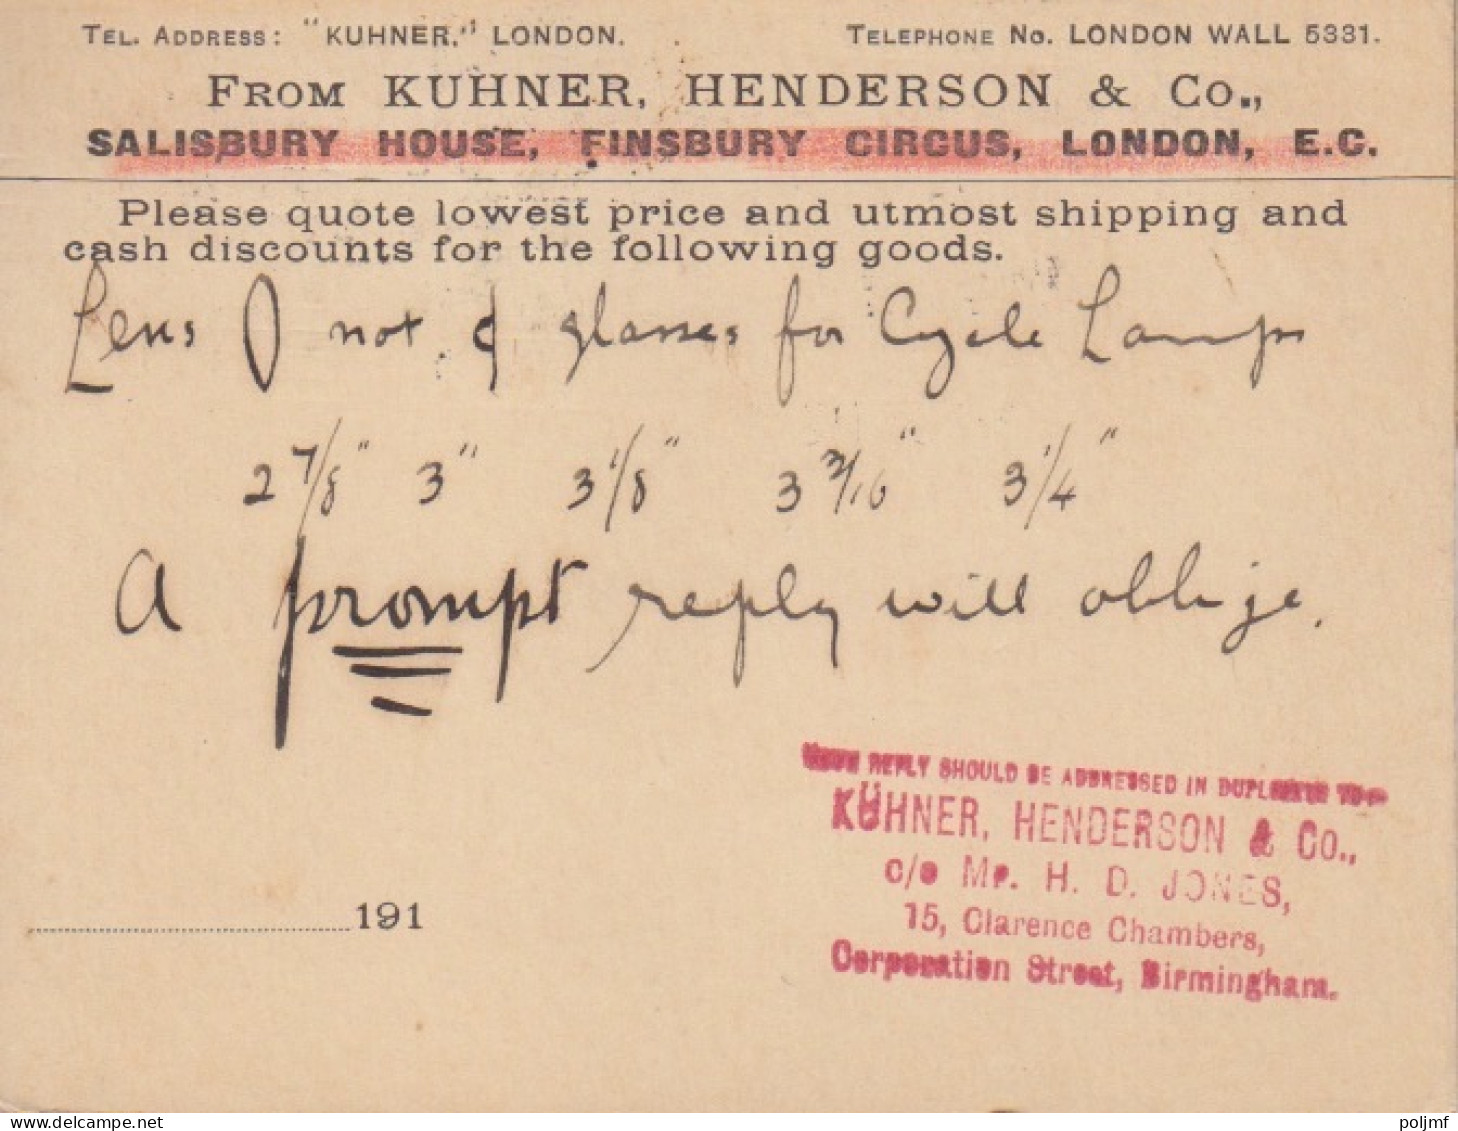 TEL. ADDRESS: "KUHNER," LONDON. TELEPHONE No. LONDON WALL 5331.
FROM KUHNER, HENDERSON & Co.,
SALISBURY HOUSE, FINSBURY CIRCUS, LONDON, E.C.
Please quote lowest price and utmost shipping and
cash discounts for the following goods.
Lens not glasses for Cycle Lamps
2 7/8" 3" 3 1/8" 3 3/16" 3 1/4"
A prompt reply will oblige.
REPLY SHOULD BE ADDRESSED IN DUPLICATE TO:-
KÜHNER, HENDERSON & Co.,
c/o Mr. H. D. JONES,
15, Clarence Chambers,
Corporation Street, Birmingham.
191
poljmf